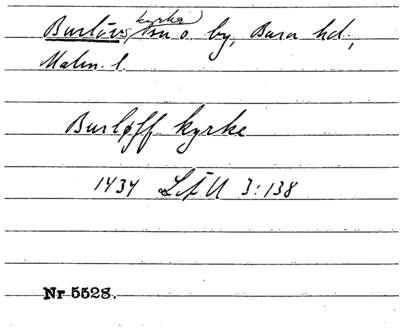 Burlövs kyrka sn o. by, Bara hd,
Malm. l.
Burløff kyrke
1434 LÄU 3:138
Nr 5528.